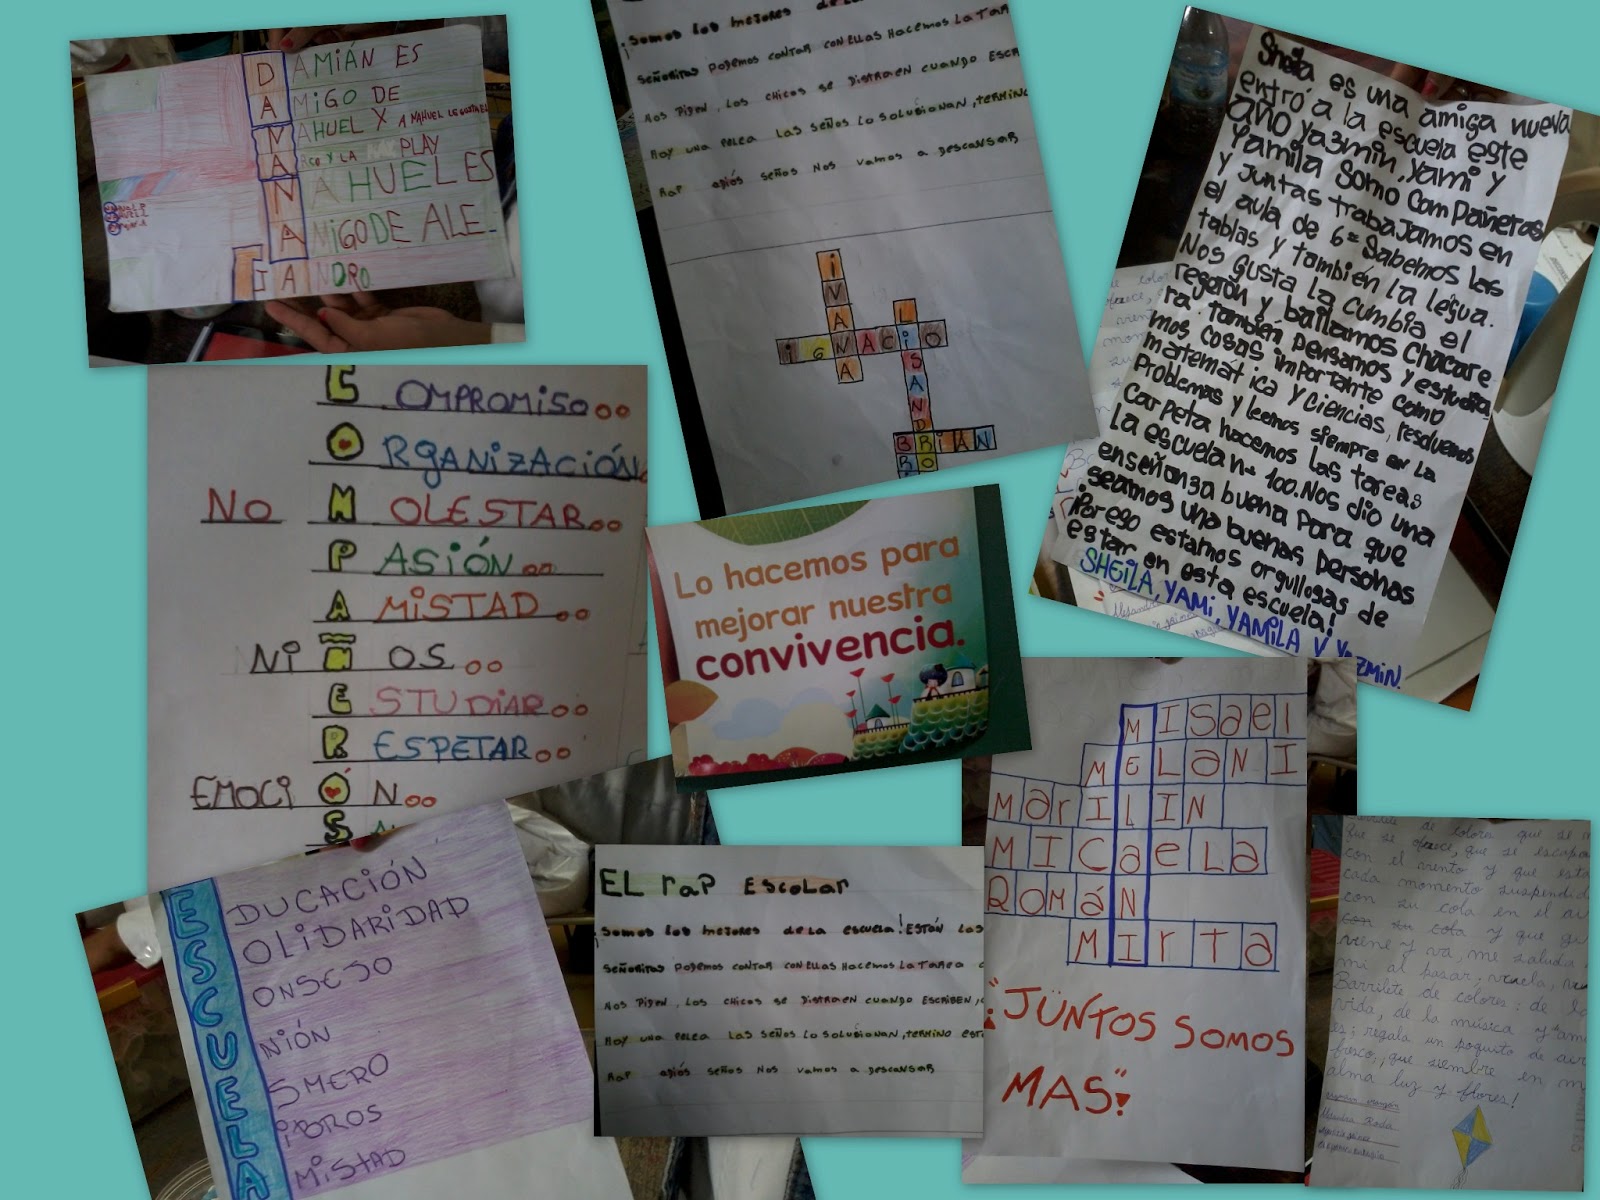 DAMIÁN ES
AMIGO DE
NAHUEL Y A NAHUEL LE GUSTA EL
PLAY
NAHUEL ES
AMIGO DE ALE-
JANDRO.
¡Somos los mejores de la
SEÑORITAS PODEMOS CONTAR CON ELLAS HACEMOS LA TAR
NOS PIDEN, LOS CHICOS SE DISTRAEN CUANDO ESCR
HAY UNA PELEA LAS SEÑOS LO SOLUCIONAN, TERMINO
RAP ADIÓS SEÑOS NOS VAMOS A DESCANSAR
IVANNA
IGNACIO
LISANDRO
BRIAN
Sheila es una amiga nueva
entró a la escuela este
año Yazmin, Yami y
Yamila Somo Compañeras
y Juntas trabajamos en
el aula de 6º Sabemos las
tablas y también la legua.
Nos gusta la cumbia el
regeton y bailamos chacare
ra, también pensamos y estudia
mos cosas importante como
matemática y ciencias, resolvemos
Problemas y leemos siempre en la
carpeta hacemos las tareas
La escuela nº 100. Nos dio una
enseñanza buena para que
seamos una buenas personas
¡Por eso estamos orgullosas de
estar en esta escuela!
SHEILA, YAMI, YAMILA Y YAZMIN.
COMPROMISO
ORGANIZACIÓN
NO MOLESTAR
PASIÓN
AMISTAD
NIÑOS
ESTUDIAR
RESPETAR
EMOCIÓN
S
Lo hacemos para
mejorar nuestra
convivencia.
MISael
MELANI
MarILIN
MICaELa
ROMÁN
MIrTa
"¡JUNTOS SOMOS
MAS"!
EDUCACIÓN
SOLIDARIDAD
CONSEJO
UNIÓN
ESMERO
LIBROS
AMISTAD
EL raP EscoLar
¡Somos los mejores de la escuela! ESTÁN LAS
SEÑORITAS PODEMOS CONTAR CON ELLAS HACEMOS LA TAREA
NOS PIDEN, LOS CHICOS SE DISTRAEN CUANDO ESCRIBEN,
HAY UNA PELEA LAS SEÑOS LO SOLUCIONAN, TERMINO EST
RAP ADIÓS SEÑOS NOS VAMOS A DESCANSAR
Barrilete de colores que se
Que se ofrece, que se escapa
con el viento y que esta
cada momento suspendid
con su cola en el ai
con su cola y que
viene y va, me saluda
mi al pasar, vuela,
Barrilete de colores: de la
vida, de la música y
es; regala un poquito de air
fresco, que siembre en m
alma luz y flores!